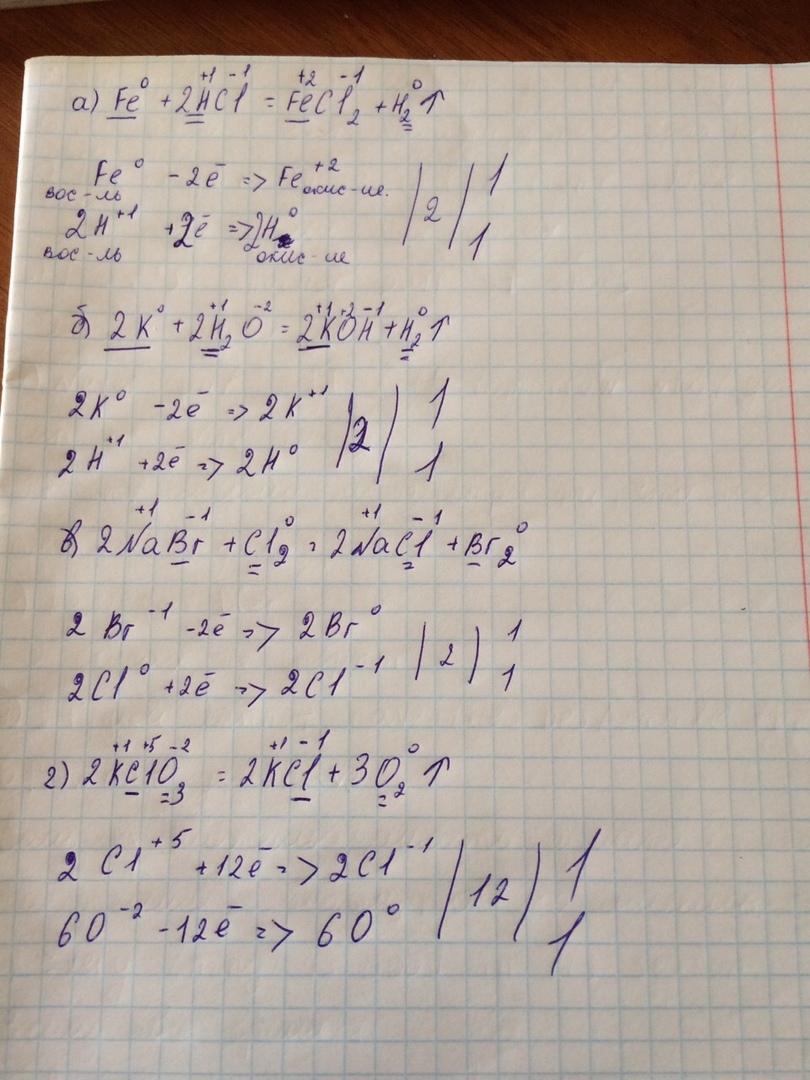 а) Fe⁰ + 2H⁺¹Cl⁻¹ = Fe⁺²Cl₂⁻¹ + H₂⁰↑
Fe⁰ - 2ē => Fe⁺² | 2 | 1
вос-ль окис-ие.
2H⁺¹ + 2ē => 2H⁰ 1
вос-ль окис-ие
б) 2K⁰ + 2H₂⁺¹O⁻² = 2K⁺¹O⁺²H⁻¹ + H₂⁰↑
2K⁰ - 2ē => 2K⁺¹ | 2 | 1
2H⁺¹ + 2ē => 2H⁰ 1
в) 2Na⁺¹Br⁻¹ + Cl₂⁰ = 2Na⁺¹Cl⁻¹ + Br₂⁰
2Br⁻¹ - 2ē => 2Br⁰ | 2 | 1
2Cl⁰ + 2ē => 2Cl⁻¹ 1
г) 2K⁺¹Cl⁺⁵O₃⁻² = 2K⁺¹Cl⁻¹ + 3O₂⁰↑
2Cl⁺⁵ + 12ē => 2Cl⁻¹ | 12 | 1
6O⁻² - 12ē => 6O⁰ 1